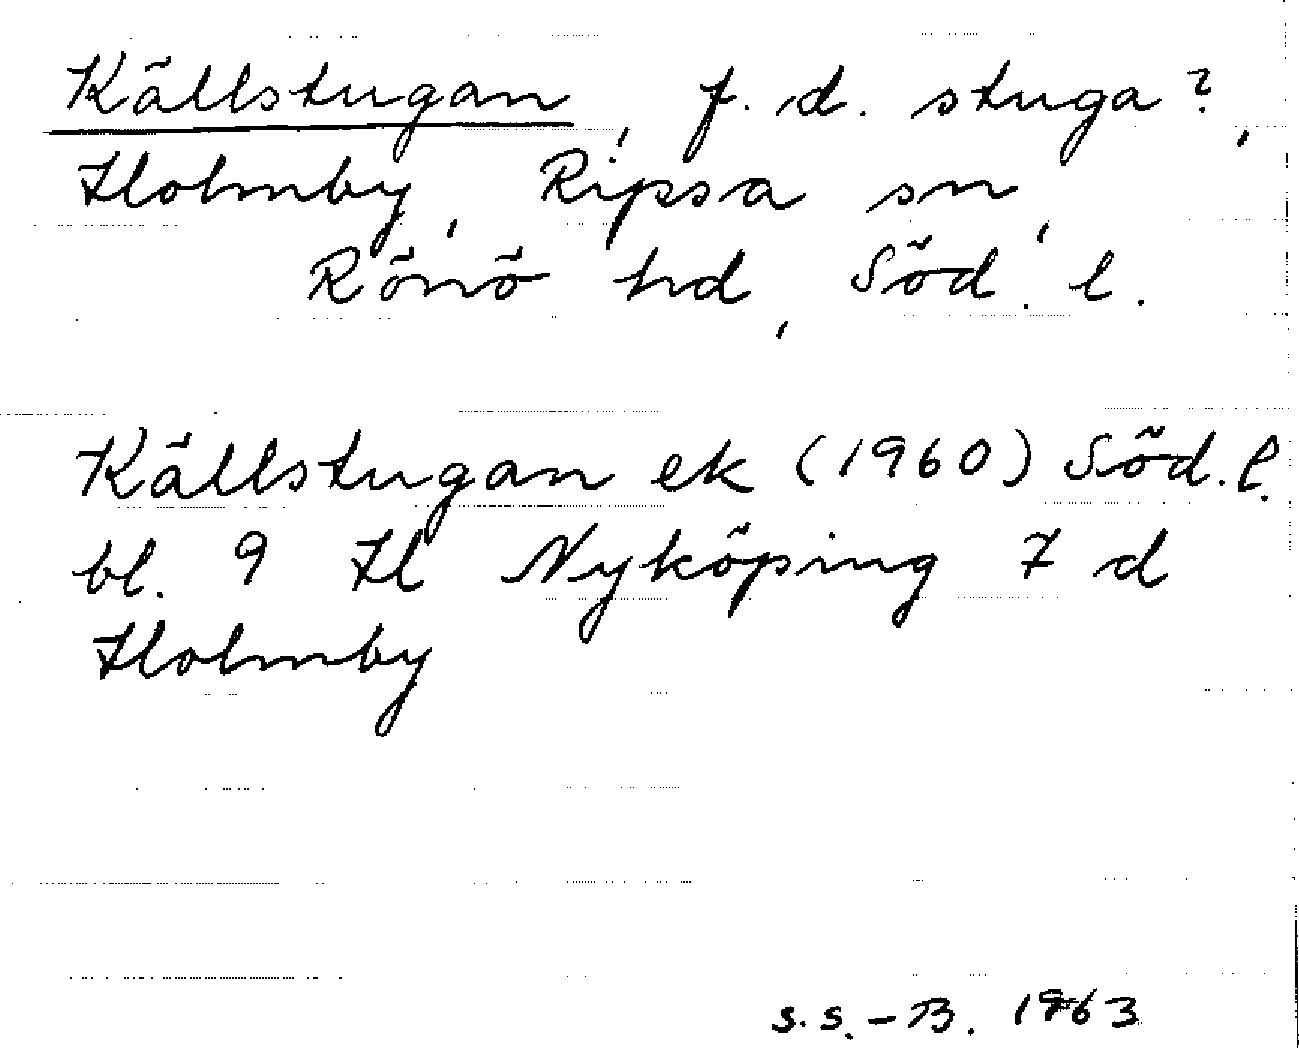 Källstugan, f. d. stuga?,
Holmby, Ripsa sn,
Rönö hd, Söd. l.
Källstugan ek (1960) Söd. l.
bl. 9 H Nyköping 7 d
Holmby
S. S. - B. 1963